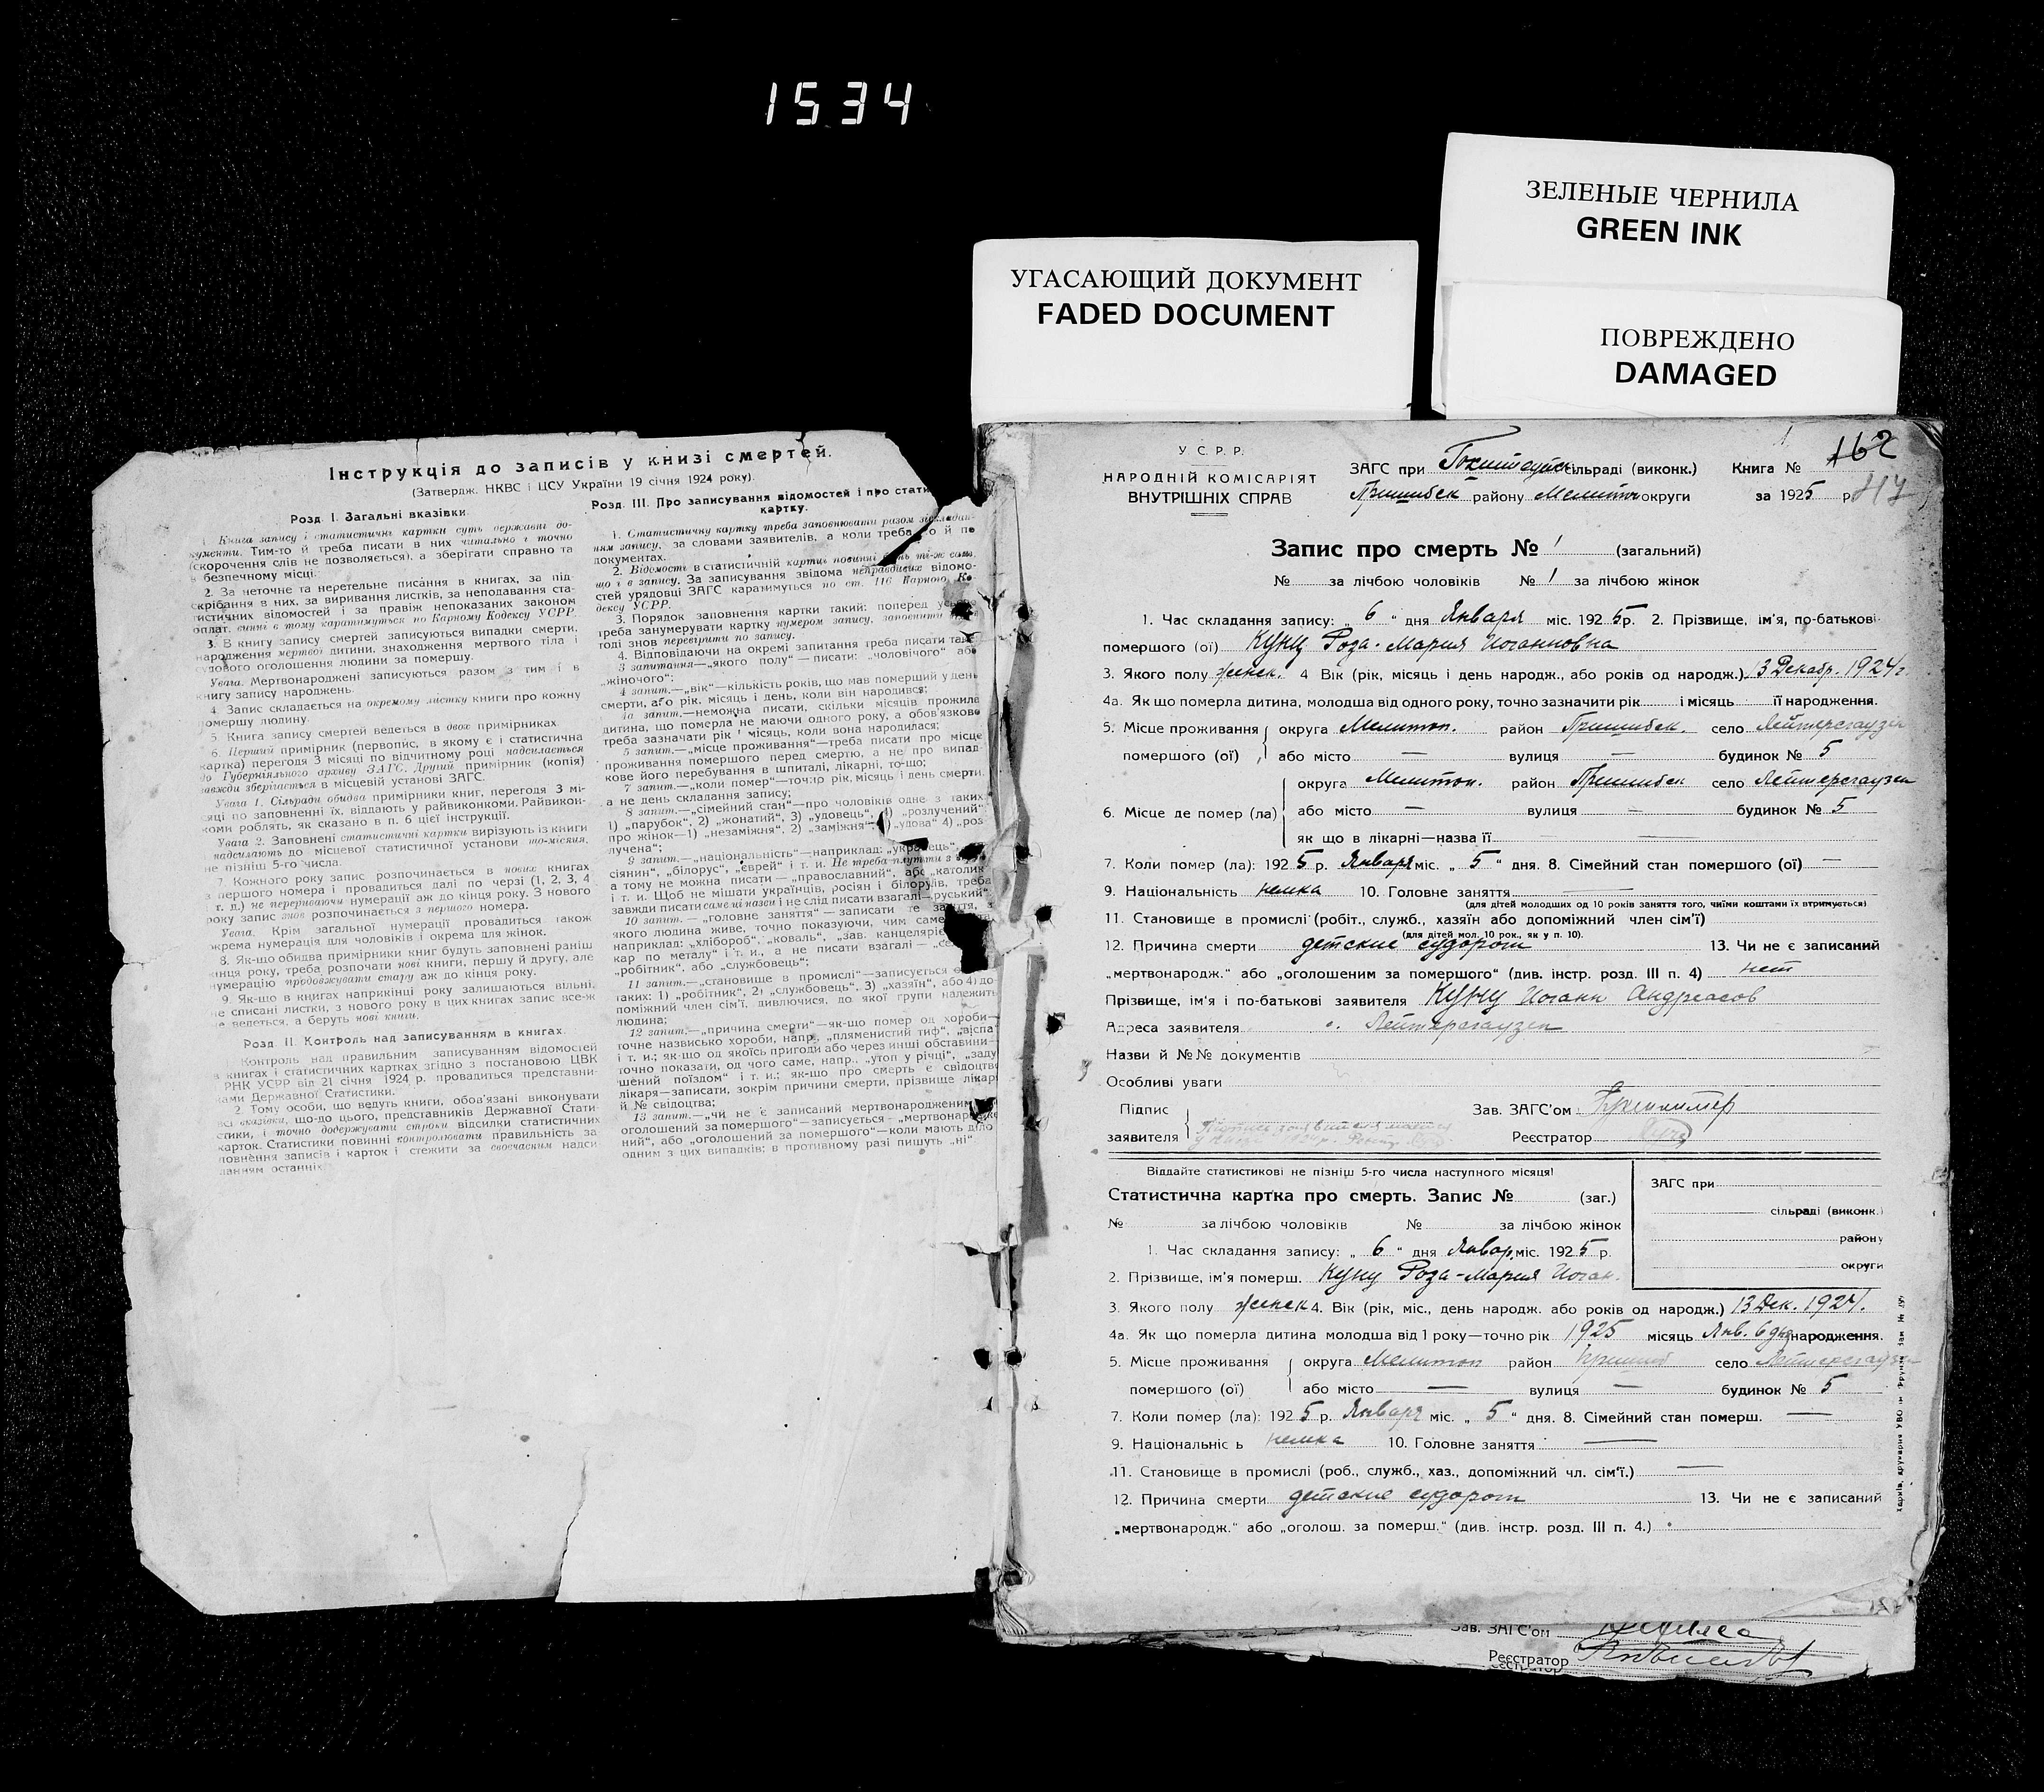 1534
ЗЕЛЕНЫЕ ЧЕРНИЛА
GREEN INK
УГАСАЮЩИЙ ДОКУМЕНТ
FADED DOCUMENT
ПОВРЕЖДЕНО
DAMAGED
Інструкція до записів у книзі смертей.
(Затвердж. НКВС і ЦСУ України 19 січня 1924 року).
Розд. I. Загальні вказівки.
1. Книга запису і статистичні картки суть державні до-
кументи. Тим-то й треба писати в них читально і точно
(скорочення слів не дозволяється), а зберігати справно та
в безпечному місці.
2. За неточне та неретельне писання в книгах, за під-
скрібання в них, за виривання листків, за неподавання ста-
тистичних відомостей і за правіж непоказаних законом
оплат, винні в тому каратимуться по Карному Кодексу УСРР.
3. В книгу запису смертей записуються випадки смерти,
народження мертвої дитини, знаходження мертвого тіла і
судового оголошення людини за померлу.
Увага. Мертвонароджені записуються разом з тим і в
книгу запису народжень.
4. Запис складається на окремому листку книги про кожну
померлу людину.
5. Книга запису смертей ведеться в двох примірниках.
6. Перший примірник (первопис, в якому є і статистична
картка) перегодя 3 місяці по відчитному році надсилається
до Губерніяльного архиву ЗАГС. Другий примірник (копія)
завжди зберігається в місцевій установі ЗАГС.
Увага 1. Сільради обидва примірники книг, перегодя 3 мі-
сяці по заповненні їх, віддають у райвиконкоми. Райвикон-
коми роблять, як сказано в п. 6 цієї інструкції.
Увага 2. Заповнені статистичні картки вирізують із книги
надсилають до місцевої статистичної установи що-місяця,
не пізніш 5-го числа.
7. Кожного року запис розпочинається в нових книгах
з першого номера і провадиться далі по черзі (1, 2, 3, 4
т. д.) не перериваючи нумерації аж до кінця року. З нового
року запис знов розпочинається з першого номера.
Увага. Крім загальної нумерації провадиться також
окрема нумерація для чоловіків і окрема для жінок.
8. Як-що обидва примірники книг будуть заповнені раніш
кінця року, треба розпочати нові книги, першу й другу, але
нумерацію продовжувати стару аж до кінця року.
9. Як-що в книгах наприкінці року залишаються вільні,
не списані листки, з нового року в цих книгах запис все-ж
не ведеться, а беруть нові книги.
Розд. II. Контроль над записуванням в книгах.
1. Контроль над правильним записуванням відомостей
в книгах і статистичних картках згідно з постановою ЦВК
РНК УСРР від 21 січня 1924 р. провадиться представни-
ками Державної Статистики.
2. Тому особи, що ведуть книги, обов'язані виконувати
всі вказівки, що-до цього, представників Державної Стати-
стики, і точно додержувати строки відсилки статистичних
карток. Статистики повинні контролювати правильність за-
повнення записів і карток і стежити за своєчасним надси
ланням останніх.
Розд. III. Про записування відомостей і про стати
картку.
1. Статистичну картку треба заповнювати разом зі складан-
ням запису, за словами заявителів, а коли треба то й по
документах.
2. Відомості в статистичній картці повинні бути ті-ж сами,
що і в запису. За записування звідома неправдивих відомо-
стей урядовці ЗАГС каратимуться по ст. 116 Карного Ко-
дексу УСРР.
3. Порядок заповнення картки такий: поперед усього
треба занумерувати картку нумером запису, заповнити
тоді знов перевірити по запису.
4. Відповідаючи на окремі запитання треба писати так:
3 запитання—„якого полу“—писати: „чоловічого“ або
„жіночого“;
4 запит.—„вік“—кількість років, що мав померший у день
смерти, або рік, місяць і день, коли він народився;
4а запит.—неможна писати, скільки місяців прожила
дитина, що померла не маючи одного року, а обов'язково
треба зазначати рік і місяць, коли вона народилася;
5 запит.—„місце проживання“—треба писати про місце
проживання помершого перед смертю, а не про випад
кове його перебування в шпиталі, лікарні, то-що;
7 запит.—„коли помер“—точно рік, місяць і день смерти,
а не день складання запису;
8 запит.—„сімейний стан“—про чоловіків одне з таких
1) „парубок“, 2) „жонатий“, 3) „удовець“, 4) „розлучений“
про жінок—1) „незаміжня“, 2) „заміжня“ „удова“ 4) „роз
лучена“;
9 запит.—„національність“—наприклад: „українець“,
сіянин“, „білорус“, „єврей“ і т. и. Не треба плутати з
а тому не можна писати—„православний“, або „католик“
і т. и. Щоб не мішати українців, росіян і білорусів, треба
завжди писати саме ці назви і не слід писати взагалі—„руський“
10 запит.—„головне заняття“—записати те заняття, з
якого людина живе, точно показуючи, чим саме
наприклад: „хлібороб“, „коваль“, „зав. канцелярією
кар по металу“ і т. и., а не писати взагалі —
„робітник“, або „службовець“;
11 запит.—„становище в промислі“—записується
таких: 1) „робітник“, 2) „службовець“, 3) „хазяїн“, або 4) до
поміжний член сім'ї, дивлючися, до якої групи належить
людина;
12 запит.—„причина смерти“—як-що помер од хороби—
точне назвисько хороби, напр., „плямenистий тиф“, „віспа“
і т. и.; як-що од якоїсь пригоди або через инші обставини—
точно показати, од чого саме, напр., „утоп у річці“, „заду
шений поїздом“ і т. и.; як-що про смерть є свідоцтво
лікаря—записати, зокрім причини смерти, прізвище лікаря
й № свідоцтва;
13 запит.—„чи не є записаний мертвонародженим
оголошений за померлого“—записується—„мертвонародже
ний“, або „оголошений за померлого“—коли мають діло
одним з цих випадків; в противному разі пишуть „ні“.
У С Р Р.
НАРОДНІЙ КОМІСАРІЯТ
ВНУТРІШНІХ СПРАВ
ЗАГС при сільраді (виконк.) Книга № 162
Пришибск району Мелитоп округи за 1925 р. 117
Запис про смерть № 1 (загальний)
№ за лічбою чоловіків № 1 за лічбою жінок
1. Час складання запису: „ 6 “ дня Января міс. 1925р. 2. Прізвище, ім'я, по-батькові
помершого (ої) Кунц Роза-Мария Иоганновна
3. Якого полу женск. 4 Вік (рік, місяць і день народж., або років од народж.) 3 Декабр. 1924 г.
4а. Як що померла дитина, молодша від одного року, точно зазначити рік і місяць її народження.
5. Місце проживання округа Мелитоп. район Пришибск. село Лейтерсгаузен
помершого (ої) або місто — вулиця — будинок № 5
округа Мелитоп. район Пришибск село Лейтерсгаузен
6. Місце де помер (ла) або місто — вулиця — будинок № 5
як що в лікарні—назва її
7. Коли помер (ла): 1925 р. Января міс. „ 5 “ дня. 8. Сімейний стан помершого (ої) —
9. Національність немка 10. Головне заняття —
(для дітей молодших од 10 років заняття того, чиїми коштами їх втримується)
11. Становище в промислі (робіт., служб., хазяїн або допоміжний член сім'ї)
(для дітей мол. 10 рок., як у п. 10).
12. Причина смерти детские судороги 13. Чи не є записаний
„мертвонародж.“ або „оголошеним за помершого“ (див. інстр. розд. III п. 4) нет
Прізвище, ім'я і по-батькові заявителя Кунц Иоганн Андреасов
Адреса заявителя с. Лейтерсгаузен
Назви й №№ документів
Особливі уваги
Підпис Зав. ЗАГС'ом
заявителя Реєстратор
Віддайте статистикові не пізніш 5-го числа наступного місяця!
Статистична картка про смерть. Запис № (заг.)
№ за лічбою чоловіків № за лічбою жінок
ЗАГС при
сільраді (виконк.)
району
округи
1. Час складання запису: „ 6 “ дня Январ. міс. 1925 р.
2. Прізвище, ім'я померш. Кунц Роза-Мария Иоган.
3. Якого полу женск 4. Вік (рік, міс., день народж. або років од народж.) 13 Дек. 1924.
4а. Як що померла дитина молодша від 1 року—точно рік 1925 місяць Янв. 6 дня народження.
5. Місце проживання округа Мелитоп район Пришиб село Лейтерсгаузен
помершого (ої) або місто — вулиця — будинок № 5
7. Коли помер (ла): 1925 р. Января міс. „ 5 “ дня. 8. Сімейний стан померш. —
9. Національніс ь немка 10. Головне заняття —
11. Становище в промислі (роб., служб., хаз., допоміжний чл. сім'ї.) —
12. Причина смерти детские судороги 13. Чи не є записаний
„мертвонародж.“ або „оголош. за померш.“ (див. інстр. розд. III п. 4.)
Зав. ЗАГС'ом
Реєстратор